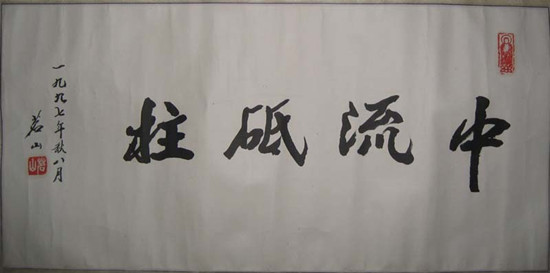 中流砥柱
一九九七年秋八月
茗山